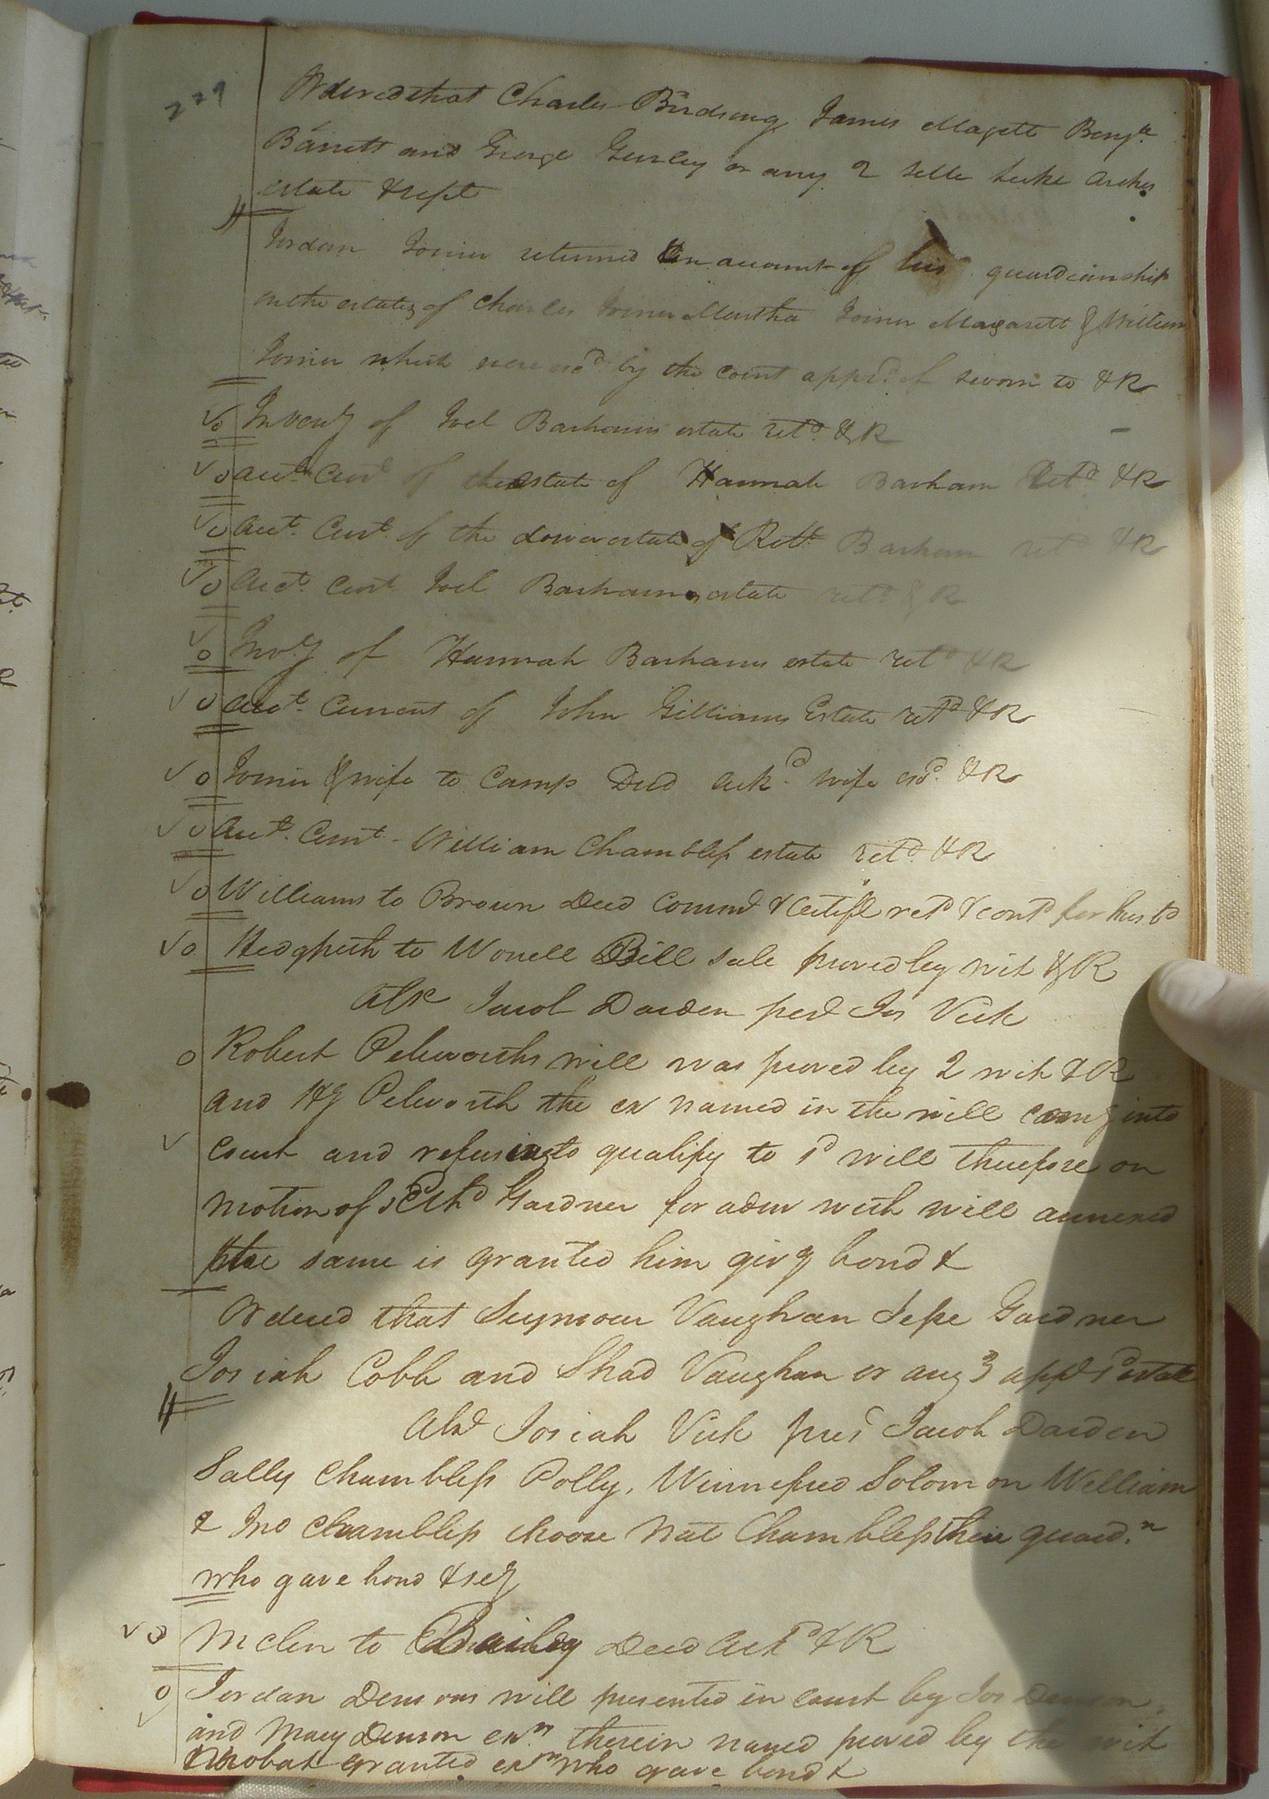 229
Ordered that Charles Birdsong James Magett Benja
Barrett and George Gurley or any 2 settle Archer
estate & rept
Jordan Joiner returned an account of his guardianship
on the estates of Charles Joiner Martha Joiner Magarett & William
Joiner which were exd by the court apprd of sworn to & R
Inventy of Joel Barhams estate retd & R
acct Curt of the estate of Hannah Barham Retd & R
acct. Curt of the dower estate of Robt Barham retd & R
acct Curt Joel Barhams estate retd & R
Invy of Hannah Barhams estate retd & R
acct Current of John Gilliams Estate retd & R
Joiner & wife to Camp Deed ackd wife exd. & R
acct. Curnt William Chambless estate retd & R
Williams to Brown Deed Commd & Certife retd & contd for hus bd
Hedgpeth to Worrell Bill sale proved by wit & R
Abst Jacob Darden pest Jos Vick
Robert Pelworths will was proved by 2 wit & R
and Hy Pelworth the ex named in the will comg into
court and refusing to qualify to sd will therefore on
motion of Gardner for adm with will annexed
the same is granted him givg bond &
Ordered that Seymour Vaughan Jesse Gardner
Josiah Cobb and Shad Vaughan or any 3 appd sd estate
Abst Josiah Vick prest Jacob Darden
Sally Chambless Polly, Winnefred Solomon William
& Jno Chambless choose Nat Chambless their guardn
who gave bond & secy
Mclen to Bailey Deed ackd & R
Jordan Densons will presented in court by Jos Denson
and Mary Denson exrs therein named proved by the wit
Probat granted exrs who gave bond &